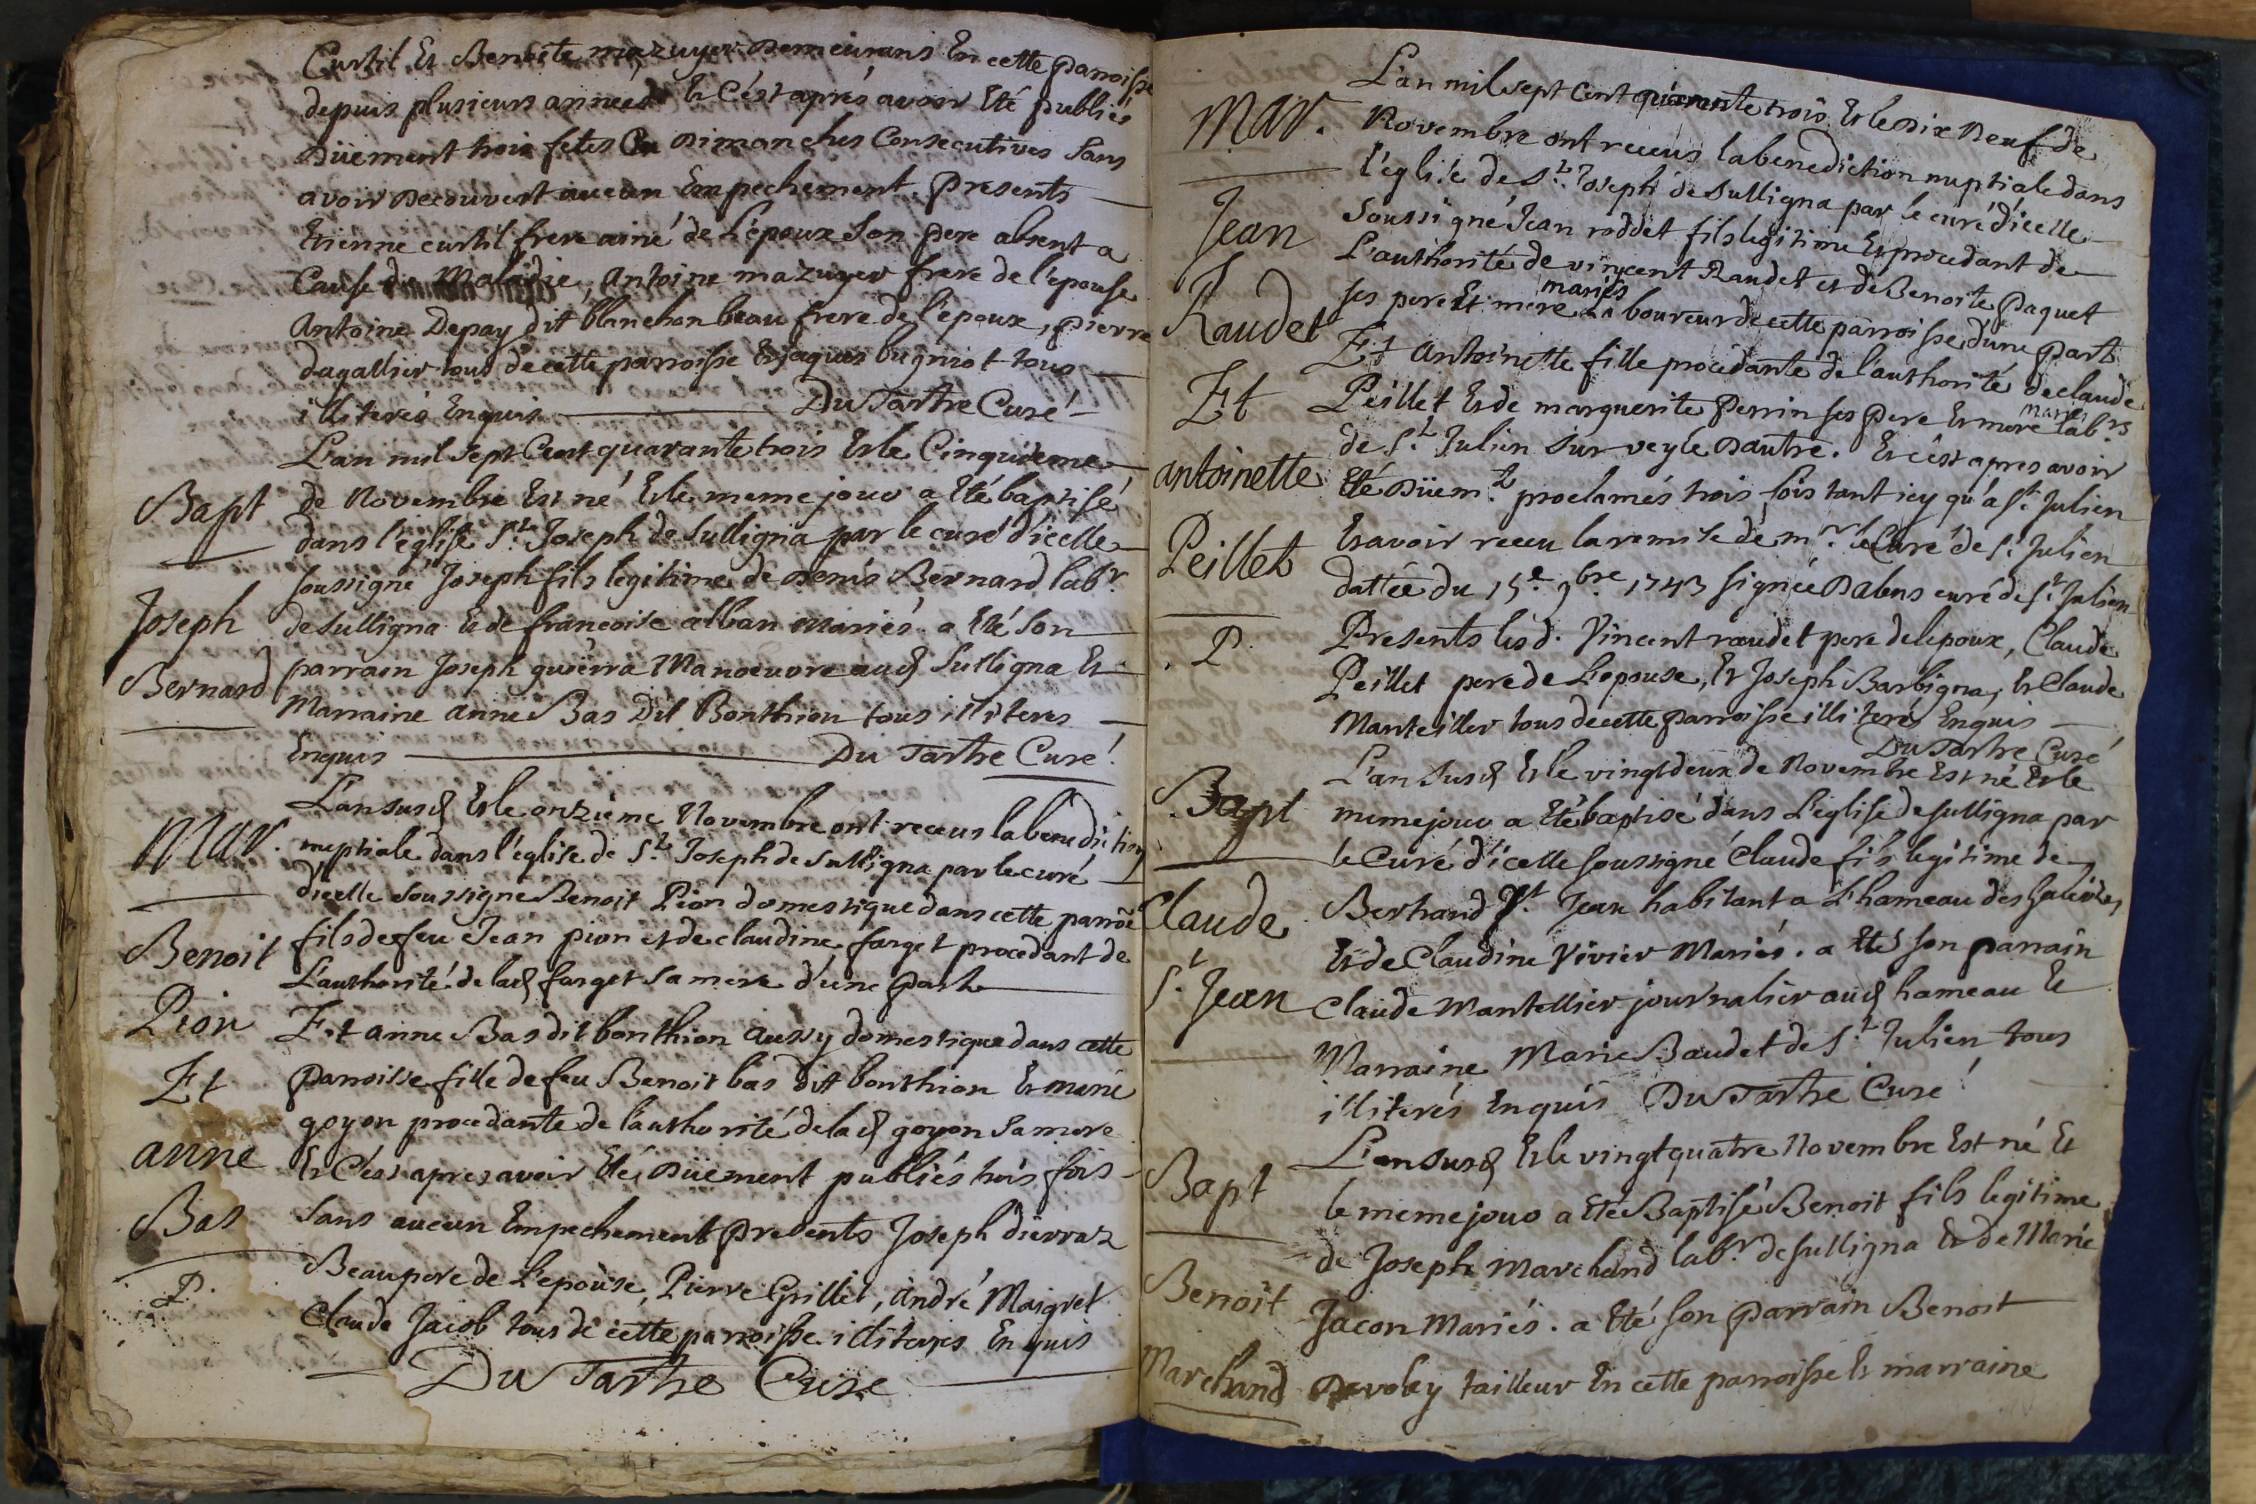 Curtil Et Benoite mazuyer Demeurans En cette parroisse
depuis plusieurs années Et C'est aprés avoir Eté publiés
Düement trois fetes Ou Dimanches Consecutives Sans
avoir Decouvert aucun Empechement. Presents
Etienne curtil frere ainé de L'epoux Son pere absent a
Cause de Maladie, Antoine mazuyer frere de l'epouse
Antoine Depay dit blanchon beau frere de l'epoux, pierre
dagallier tous de cette parroisse Et jaques bugniot tous
illiterés Enquis Du Tartre Curé
L'an mil Sept Cent quarante trois Et le Cinquiéme
Bapt
de Novembre Est né Et le meme jour a Eté baptisé
dans l'eglise St. Joseph de Sulligna par le curé d'icelle
soussigné Joseph fils legitime de Denis Bernard labr.
Joseph
de Sulligna Et de francoise alban mariés. a Eté Son
Bernard
parrain Joseph quierra Manoeuvre aud Sulligna Et
Marraine anne Bas Dit Bonthion tous illiteres
Enquis Du Tartre Curé.
L'an susd Et le onziéme Novembre ont receus la benediction
Mar.
nuptiale dans l'eglise de St. Joseph de Sulligna par le curé
d'icelle Soussigné Benoit Pion domestique dans cette parroe
Benoit
fils de feu Jean pion et de claudine farget procedant de
L'authorité de lad farget Sa mere d'une Part
Pion
Et anne Bas dit bonthion aussy domestique dans cette
Et
Parroisse fille de feu Benoit bas dit bonthion Et marie
goyon procedante de l'authorité de lad goyon Sa mere
anne
Et C'est apres avoir Eté Düement publiés trois fois
Bas
Sans aucun Empechement Presents Joseph dierraz
Beaupere de L'epouse, Pierre Grillet, André Maigret
P.
Claude Jacob tous de cette parroisse illiterés Enquis
Du Tartre Curé
L'an mil sept Cent quarante trois Et le Dix Neuf de
Mar.
Novembre ont receus la benediction nuptiale dans
l'eglise de St. Joseph de Sulligna par le curé d'icelle
Jean
Soussigné Jean roddet fils legitime Et procedant de
L'authorité de vincent Raudet et de Benoite Paquet
Raudet
ses pere Et mere mariés Laboureur de cette parroisse d'une part
Et Antoinette fille procedante de l'authorité de claude
Et
Peillet Et de marguerite Perrin ses pere Et mere mariés labrs
de St. Julien Sur veyle D'autre. Et c'est apres avoir
antoinette
Eté Düemt. proclamés trois fois tant icy qu'a St. Julien
Peillet
Et avoir receu la remise de mr. le Curé de St. Julien
dattée du 15e. 9bre 1743 signée Dabens curé de St. Julien
P.
Presents lesd. Vincent raudet pere de lepoux, Claude
Peillet pere de L'epouse, Et Joseph Barbigna, Et Claude
Manteiller tous de cette parroisse illiterés Enquis
Du Tartre Curé
L'an Susd Et le vingtdeux de Novembre Est né Et le
Bapt
meme jour a Eté baptisé dans L'eglise de sulligna par
le Curé d'icelle soussigné Claude fils legitime de
Claude
Bertrand St. Jean habitant a L'hameau des
Et de Claudine Vivier Mariés. a Eté son parrain
St. Jean
Claude Mantellier journalier aud hameau Et
Marraine Marie Baudet de St. Julien tous
illiterés Enquis Du Tartre Curé
L'an Susd Et le vingtquatre Novembre Est né Et
Bapt
le meme jour a Eté Baptisé Benoit fils legitime
de Joseph Marchand labr. de sulligna Et de Marie
Benoit
Jacon Mariés. a Eté son Parrain Benoit
Marchand
Devoley tailleur En cette parroisse Et marraine